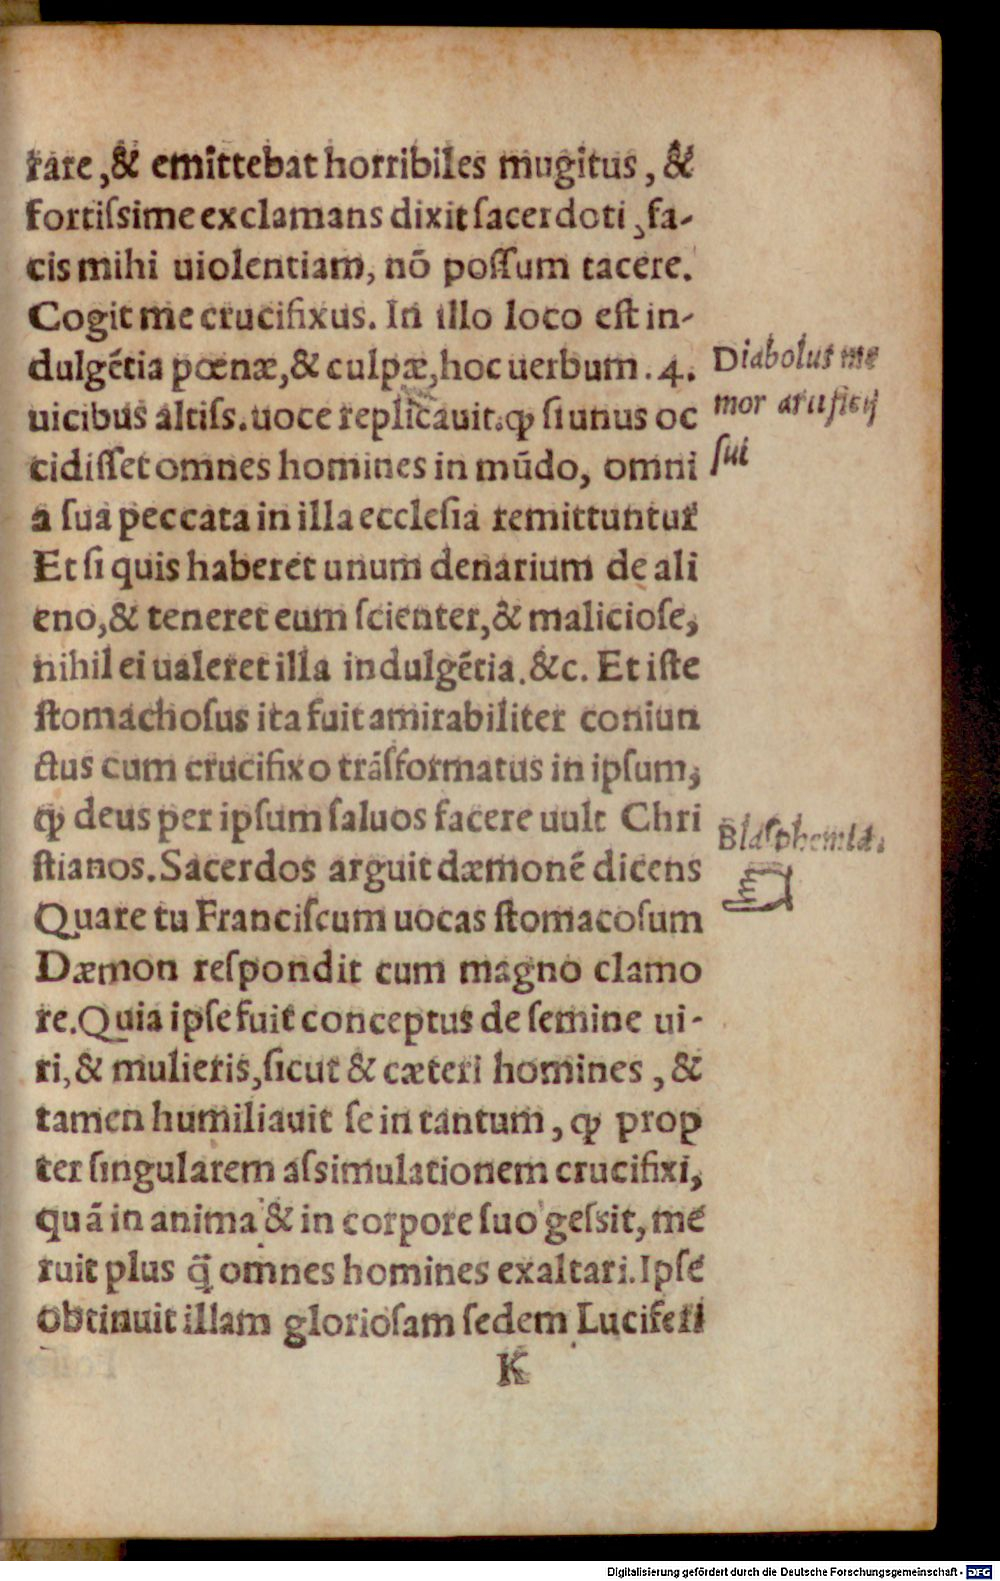 rare, & emittebat horribiles mugitus, &
fortiſsime exclamans dixit ſacerdoti, fa-
cis mihi uiolentiam, nō poſſum tacere.
Cogit me crucifixus. In illo loco eſt in-
dulgētia pœnæ, & culpæ, hoc uerbum .4.
uicibus altiſs. uoce replicauit. ꝙ ſi unus oc
cidiſſet omnes homines in mūdo, omni
a ſua peccata in illa eccleſia remittuntur
Et ſi quis haberet unum denarium de ali
eno, & teneret eum ſcienter, & malicioſe,
nihil ei ualeret illa indulgētia. &c. Et iſte
ſtomachoſus ita fuit amirabiliter coniun
ctus cum crucifixo trāſformatus in ipſum,
ꝙ deus per ipſum ſaluos facere uult Chri
ſtianos. Sacerdos arguit dæmonē dicens
Quare tu Franciſcum uocas ſtomacoſum
Dæmon reſpondit cum magno clamo
re. Quia ipſe fuit conceptus de ſemine ui-
ri, & mulieris, ſicut & cæteri homines, &
tamen humiliauit ſe in tantum, ꝙ prop
ter ſingularem aſsimulationem crucifixi,
quā in anima & in corpore ſuo geſsit, me
ruit plus q̃ omnes homines exaltari. Ipſe
obtinuit illam glorioſam ſedem Luciferi
K
Diabolus me
mor artificij
ſui
Blaſphemia.
Digitalisierung gefördert durch die Deutsche Forschungsgemeinschaft - DFG